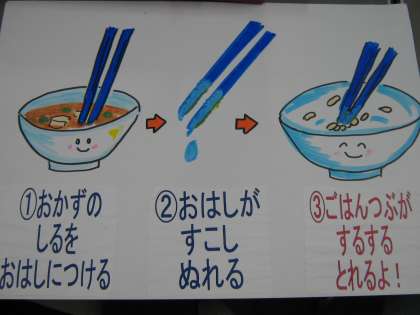 ①おかずの
しるを
おはしにつける
②おはしが
すこし
ぬれる
③ごはんつぶが
するする
とれるよ！